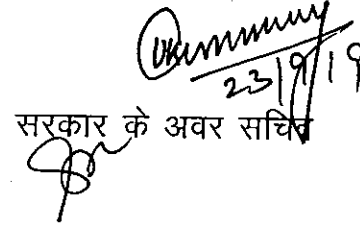 23/9/19
सरकार के अवर सचिव